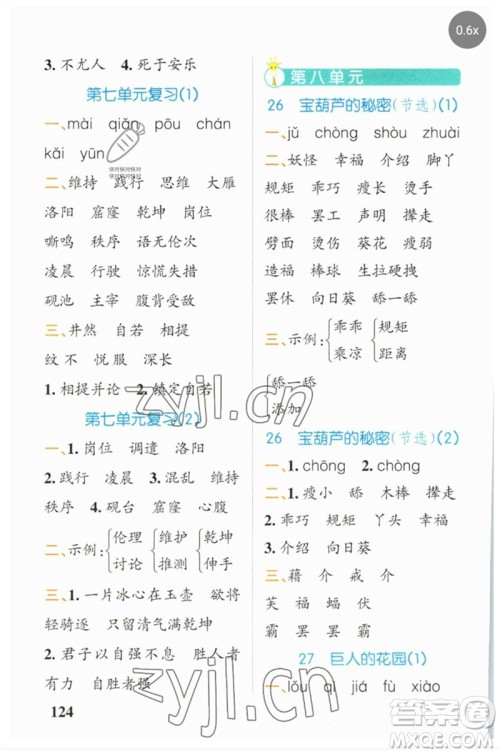 3. 不尤人  4. 死于安乐
第七单元复习(1)
一、mài  qiǎn  pōu  chán
kǎi  yūn
二、维持  践行  思维  大雁
洛阳  窟窿  乾坤  岗位
嘶鸣  秩序  语无伦次
凌晨  行驶  惊慌失措
砚池  主宰  腹背受敌
三、井然  自若  相提
纹丝不  悦服  深长
1. 相提并论  2. 镇定自若
第七单元复习(2)
一、1. 岗位  调遣  洛阳
2. 践行  凌晨  3. 混乱  维持
秩序  4. 砚台  窟窿  心腹
二、示例：
伦理
讨论
维护
推测
乾坤
伸手
三、1. 一片冰心在玉壶  欲将
轻骑逐  只留清气满乾坤
2. 君子以自强不息  胜人者
有力  自胜者强
124
0.6x
第八单元
26  宝葫芦的秘密(节选)(1)
一、jǔ  chòng  shòu  zhuài
二、妖怪  幸福  介绍  脚丫
规矩  乖巧  瘦长  烫手
很棒  罢工  声明  撵走
劈面  烫伤  葵花  瘦弱
造福  棒球  坐享其
罢休  向日葵  舔一舔
三、示例：
乖乖
乘凉
规矩
距离
舔一舔
添加
26  宝葫芦的秘密(节选)(2)
一、1. chōng  2. chòng
二、1. 瘦小  舔  木棒  撵走
2. 乖巧  规矩  丫头  幸福
3. 介绍  向日葵
三、藉  介  戒  介
芙  福  蝠  伏
霸  罢  罢  霸
27  巨人的花园(1)
一、lòu  qì  jiá  fú  xiào